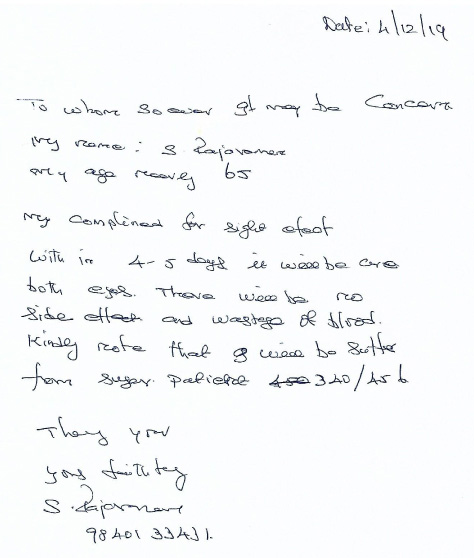 Date: 4/12/19
To whom so ever it may be Concern
my name: S. Rajaraman
my age 65
my complined for sight efect
with in 4-5 days it will be cure
both eyes. There will be no
side effect and wastage of blood.
Kindly note that I will be suffer
from suger. patient 340/456
Thank you
yours faithfully
S. Rajaraman
98401 33431.